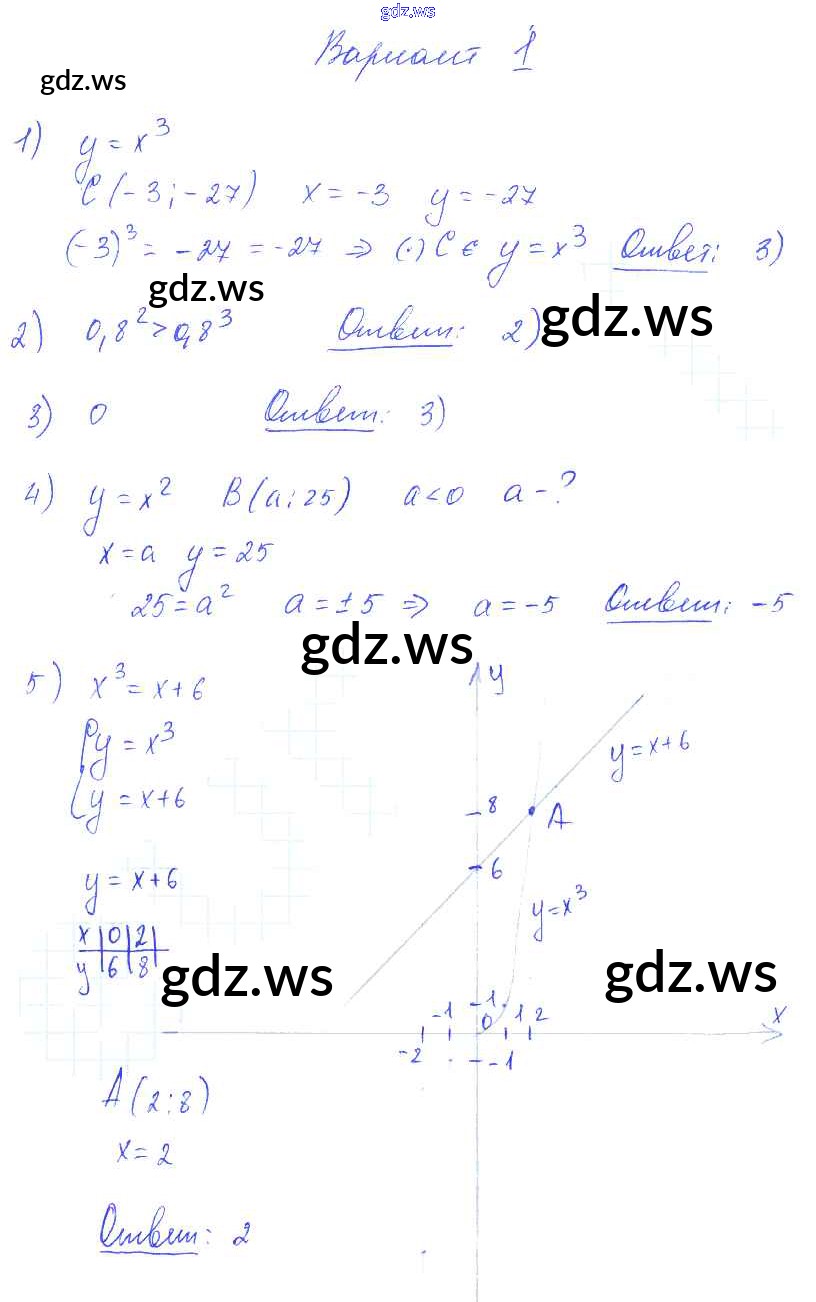 gdz.ws
Вариант 1
gdz.ws
1) y = x³
C(-3; -27) x = -3 y = -27
(-3)³ = -27 = -27 ⇒ (·) C ∈ y = x³ Ответ: 3)
gdz.ws
2) 0,8² > 0,8³ Ответ: 2)
gdz.ws
3) 0 Ответ: 3)
4) y = x² B(a; 25) a < 0 a - ?
x = a y = 25
25 = a² a = ±5 ⇒ a = -5 Ответ: -5
gdz.ws
5) x³ = x + 6
{ y = x³
y = x + 6
y = x + 6
x | 0 | 2 |
y | 6 | 8 |
gdz.ws
A(2; 8)
x = 2
Ответ: 2
y
y = x + 6
8
A
6
y = x³
gdz.ws
-1 1 0 1 2 x
-2 -1